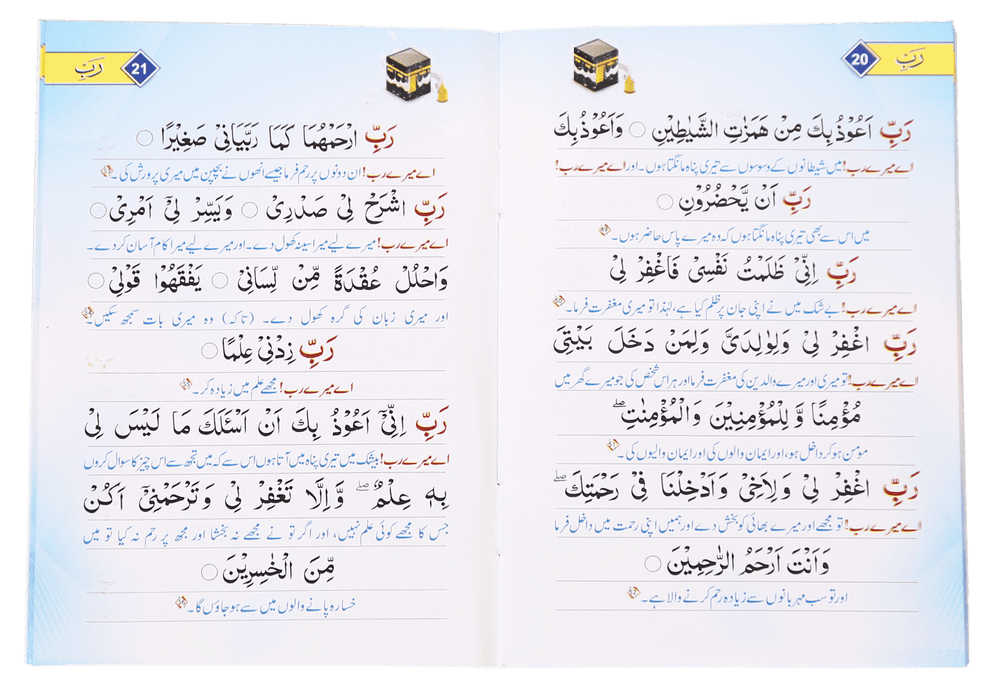 رَبِّ 20
رَبِّ اَعُوْذُ بِكَ مِنْ هَمَزٰتِ الشَّيٰطِيْنِ ○ وَاَعُوْذُ بِكَ
اے میرے رب! میں شیطانوں کے وسوسوں سے تیری پناہ مانگتا ہوں۔ اور اے میرے رب!
رَبِّ اَنْ يَّحْضُرُوْنِ ○
میں اس سے بھی تیری پناہ مانگتا ہوں کہ وہ میرے پاس حاضر ہوں۔
رَبِّ اِنِّيْ ظَلَمْتُ نَفْسِيْ فَاغْفِرْ لِيْ
اے میرے رب! بے شک میں نے اپنی جان پر ظلم کیا ہے، لہٰذا تو میری مغفرت فرما۔
رَبِّ اغْفِرْ لِيْ وَلِوٰلِدَيَّ وَلِمَنْ دَخَلَ بَيْتِيَ
اے میرے رب! تو میری اور میرے والدین کی مغفرت فرما اور ہر اس شخص کی جو میرے گھر میں
مُؤْمِنًا وَّ لِلْمُؤْمِنِيْنَ وَالْمُؤْمِنٰتِ ؕ
مومن ہو کر داخل ہو، اور ایمان والوں کی اور ایمان والیوں کی۔
رَبِّ اغْفِرْ لِيْ وَلِاَخِيْ وَاَدْخِلْنَا فِيْ رَحْمَتِكَ ۖ
اے میرے رب! تو مجھے اور میرے بھائی کو بخش دے اور ہمیں اپنی رحمت میں داخل فرما
وَاَنْتَ اَرْحَمُ الرّٰحِمِيْنَ ○
اور تو سب مہربانوں سے زیادہ رحم کرنے والا ہے۔
21 رَبِّ
رَبِّ ارْحَمْهُمَا كَمَا رَبَّيَانِيْ صَغِيْرًا ○
اے میرے رب! ان دونوں پر رحم فرما جیسے انھوں نے بچپن میں میری پرورش کی۔
رَبِّ اشْرَحْ لِيْ صَدْرِيْ ○ وَيَسِّرْ لِيْٓ اَمْرِيْ ○
اے میرے رب! میرے لیے میرا سینہ کھول دے۔ اور میرے لیے میرا کام آسان کر دے۔
وَاحْلُلْ عُقْدَةً مِّنْ لِّسَانِيْ ○ يَفْقَهُوْا قَوْلِيْ ○
اور میری زبان کی گرہ کھول دے۔ (تاکہ) وہ میری بات سمجھ سکیں۔
رَبِّ زِدْنِيْ عِلْمًا ○
اے میرے رب! مجھے علم میں زیادہ کر۔
رَبِّ اِنِّيْٓ اَعُوْذُ بِكَ اَنْ اَسْئَلَكَ مَا لَيْسَ لِيْ
اے میرے رب! بیشک میں تیری پناہ میں آتا ہوں اس سے کہ میں تجھ سے اس چیز کا سوال کروں
بِهٖ عِلْمٌ ؕ وَاِلَّا تَغْفِرْ لِيْ وَتَرْحَمْنِيْٓ اَكُنْ
جس کا مجھے کوئی علم نہیں، اور اگر تو نے مجھے نہ بخشا اور مجھ پر رحم نہ کیا تو میں
مِّنَ الْخٰسِرِيْنَ ○
خسارہ پانے والوں میں سے ہو جاؤں گا۔